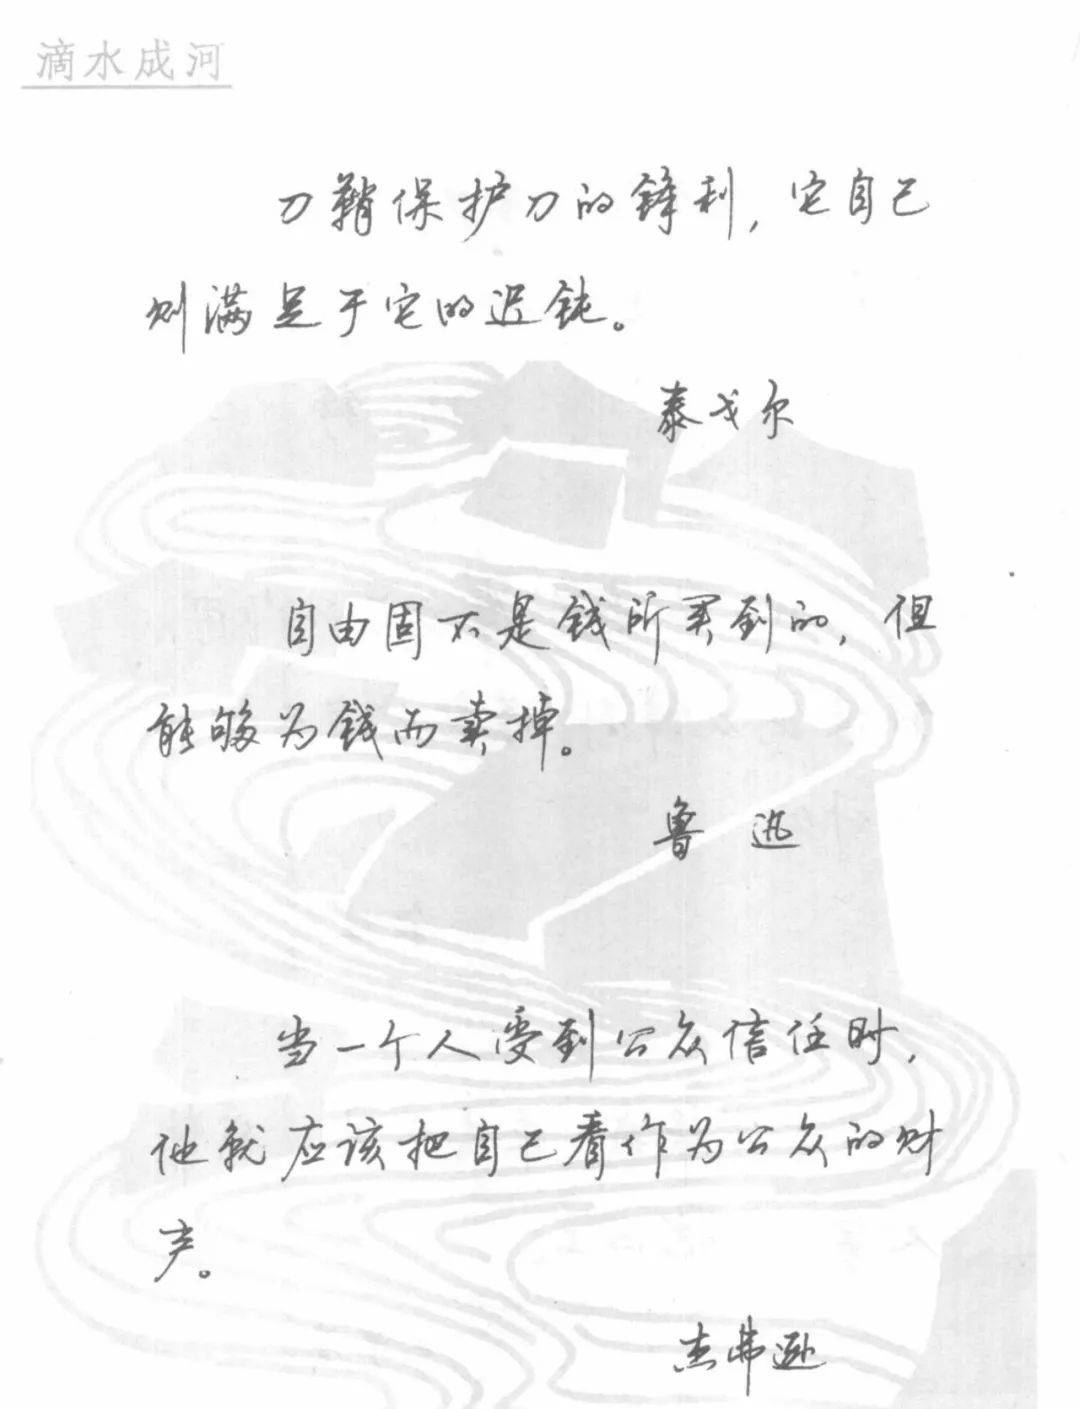 滴水成河
刀鞘保护刀的锋利，它自己
则满足于它的迟钝。
泰戈尔
自由固不是钱所买到的，但
能够为钱而卖掉。
鲁迅
当一个人受到公众信任时，
他就应该把自己看作为公众的财
产。
杰弗逊